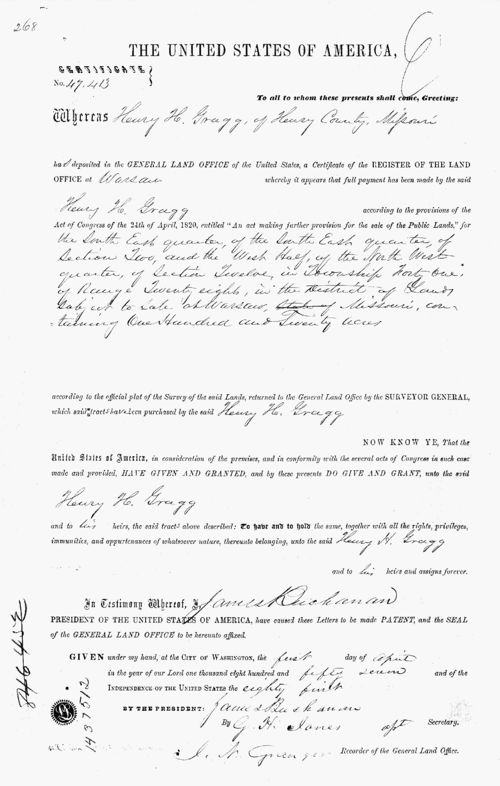 268
THE UNITED STATES OF AMERICA,
CERTIFICATE
No. 47.413
To all to whom these presents shall come, Greeting:
Whereas Henry H. Gragg, of Henry County, Missouri
has deposited in the GENERAL LAND OFFICE of the United States, a Certificate of the REGISTER OF THE LAND
OFFICE at Warsaw whereby it appears that full payment has been made by the said
Henry H. Gragg according to the provisions of the
Act of Congress of the 24th of April, 1820, entitled "An act making further provision for the sale of the Public Lands," for
the South East quarter, of the South East quarter, of
Section Two, and the West Half, of the North West
quarter, of Section Twelve, in Township Forty one,
of Range Twenty eight, in the District of Lands
Subject to Sale at Warsaw, State of Missouri, con-
-taining One Hundred and Twenty acres
according to the official plat of the Survey of the said Lands, returned to the General Land Office by the SURVEYOR GENERAL,
which said tracts have been purchased by the said Henry H. Gragg
NOW KNOW YE, That the
United States of America, in consideration of the premises, and in conformity with the several acts of Congress in such case
made and provided, HAVE GIVEN AND GRANTED, and by these presents DO GIVE AND GRANT, unto the said
Henry H. Gragg
and to his heirs, the said tracts above described: To have and to hold the same, together with all the rights, privileges,
immunities, and appurtenances of whatsoever nature, thereunto belonging, unto the said Henry H. Gragg
and to his heirs and assigns forever.
In Testimony Whereof, I, James Buchanan
PRESIDENT OF THE UNITED STATES OF AMERICA, have caused these Letters to be made PATENT, and the SEAL
of the GENERAL LAND OFFICE to be hereunto affixed.
GIVEN under my hand, at the CITY OF WASHINGTON, the first day of April
in the year of our Lord one thousand eight hundred and fifty seven and of the
INDEPENDENCE OF THE UNITED STATES the eighty first
BY THE PRESIDENT: James Buchanan
By G. H. Jones Secretary.
J. N. Granger Recorder of the General Land Office.
1437512